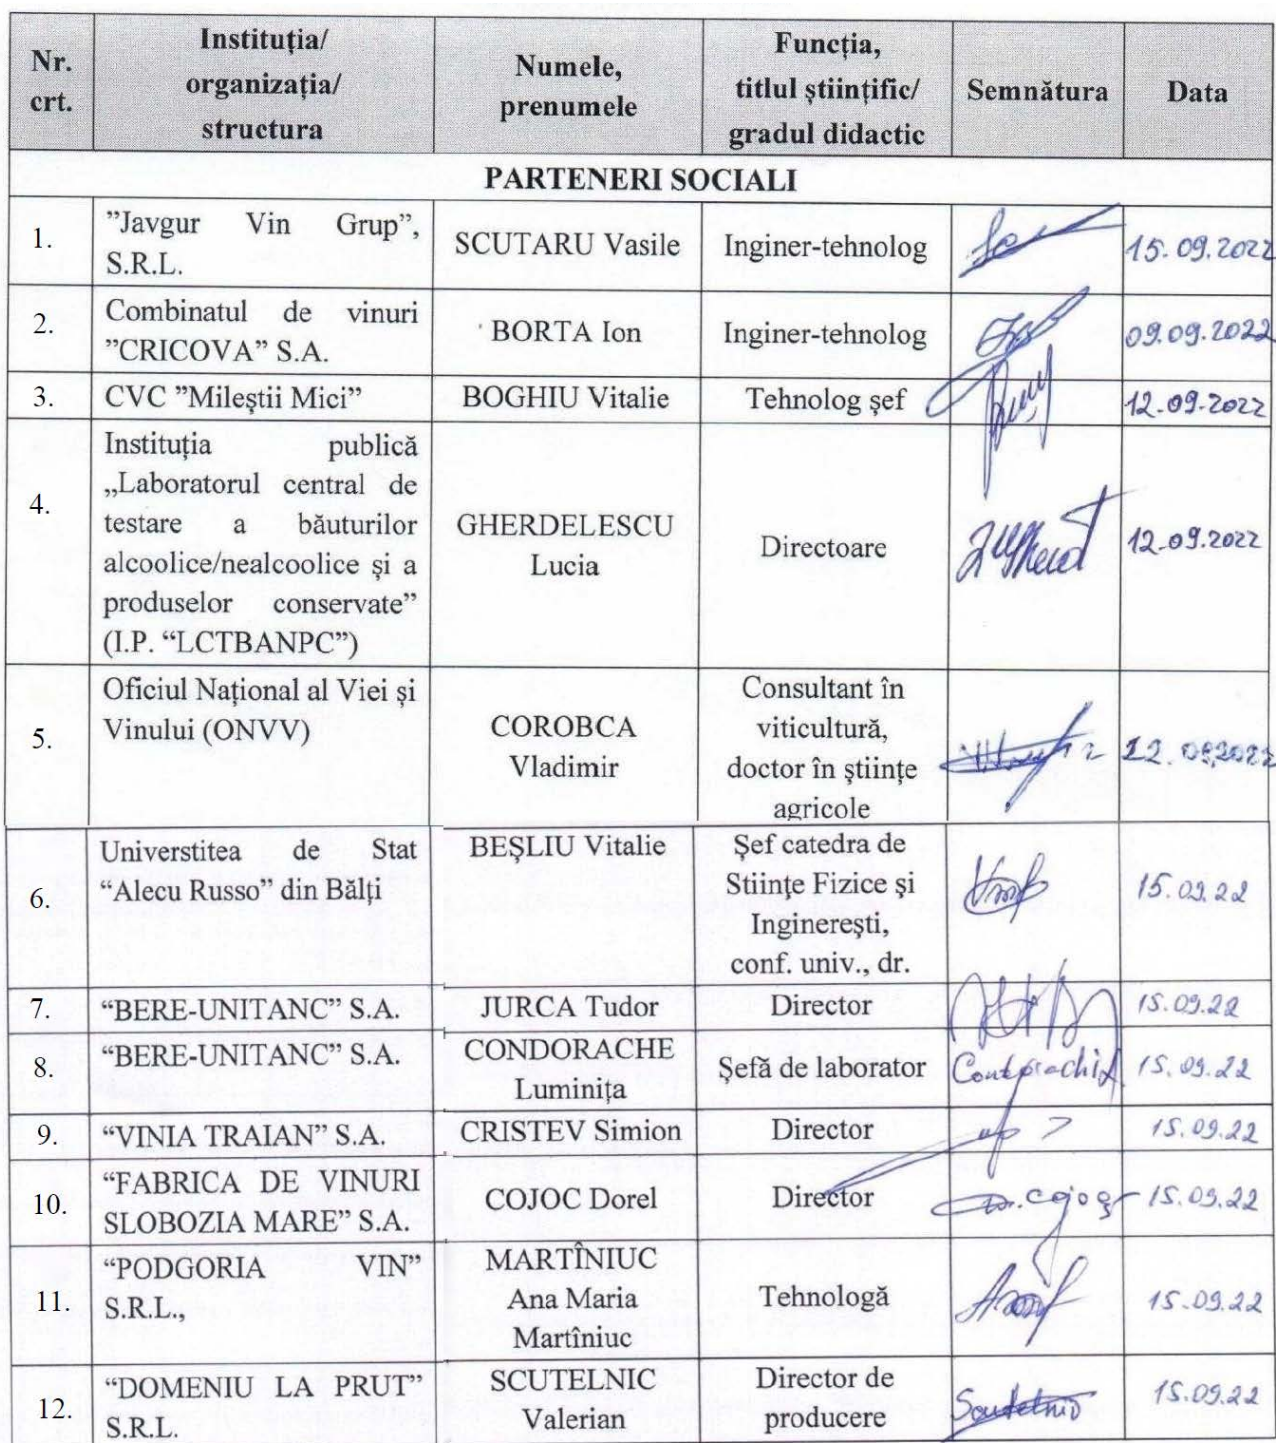 Nr. crt.
Instituția/ organizația/ structura
Numele, prenumele
Funcția, titlul științific/ gradul didactic
Semnătura
Data
PARTENERI SOCIALI
1.
”Javgur Vin Grup”,
S.R.L.
SCUTARU Vasile
Inginer-tehnolog
15.09.2022
2.
Combinatul de vinuri
”CRICOVA” S.A.
BORTA Ion
Inginer-tehnolog
09.09.2022
3.
CVC ”Mileștii Mici”
BOGHIU Vitalie
Tehnolog șef
12.09.2022
4.
Instituția publică
„Laboratorul central de
testare a băuturilor
alcoolice/nealcoolice și a
produselor conservate”
(I.P. “LCTBANPC”)
GHERDELESCU
Lucia
Directoare
12.09.2022
5.
Oficiul Național al Viei și
Vinului (ONVV)
COROBCA
Vladimir
Consultant în
viticultură,
doctor în științe
agricole
12.09.2022
6.
Universtitea de Stat
“Alecu Russo” din Bălți
BEȘLIU Vitalie
Șef catedra de
Stiințe Fizice și
Inginerești,
conf. univ., dr.
15.09.22
7.
“BERE-UNITANC” S.A.
JURCA Tudor
Director
15.09.22
8.
“BERE-UNITANC” S.A.
CONDORACHE
Luminița
Șefă de laborator
15.09.22
9.
“VINIA TRAIAN” S.A.
CRISTEV Simion
Director
15.09.22
10.
“FABRICA DE VINURI
SLOBOZIA MARE” S.A.
COJOC Dorel
Director
15.09.22
11.
“PODGORIA VIN”
S.R.L.,
MARTÎNIUC
Ana Maria
Martîniuc
Tehnologă
15.09.22
12.
“DOMENIU LA PRUT”
S.R.L.
SCUTELNIC
Valerian
Director de
producere
15.09.22